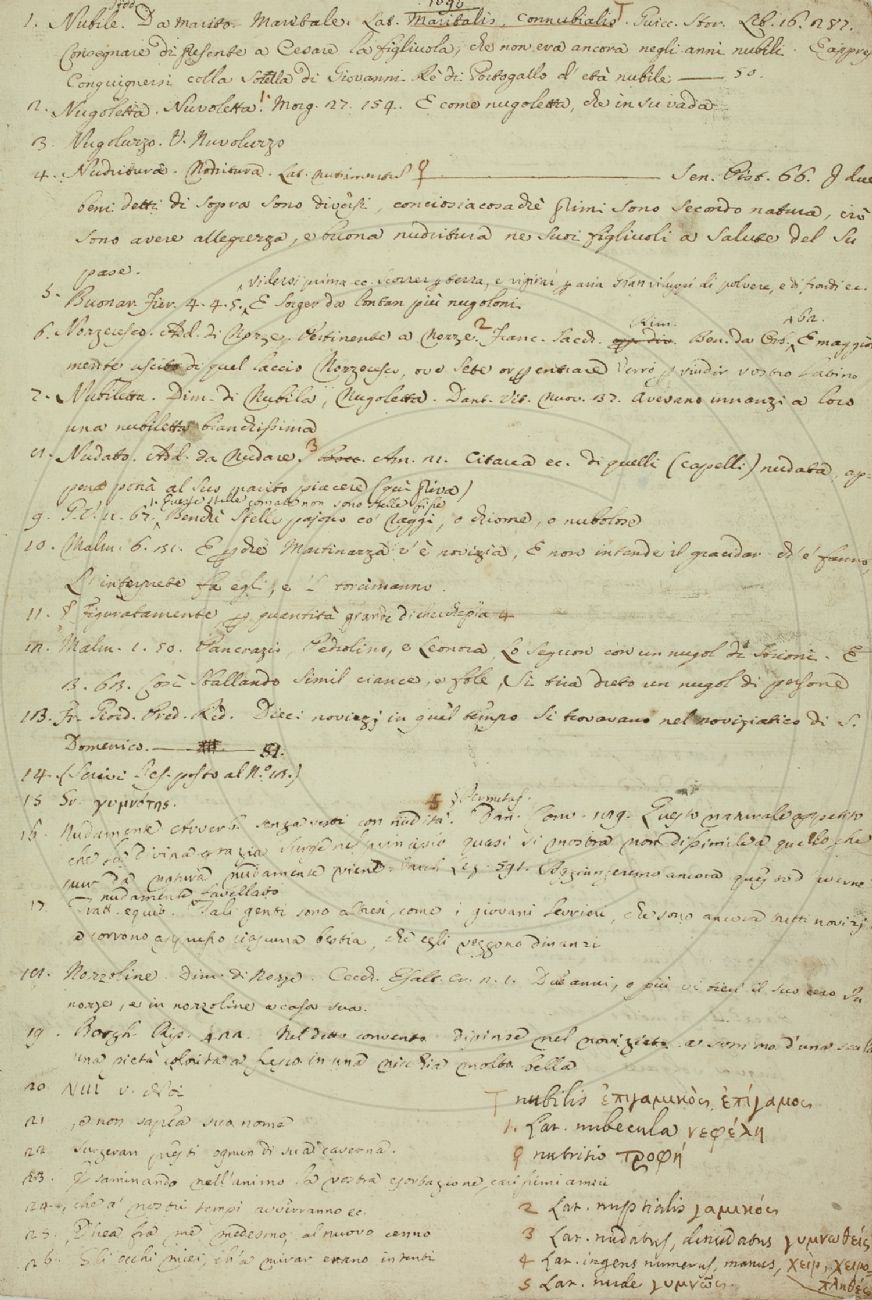 1. Nubile. Da marito. Maritale. Lat. Maritalis, connubialis. Guicc. Stor. Lib. 16. 787.
Consegnare di presente a Cesare la figliuola, che non era ancora negli anni nubili. E appr.
Congiugnersi colla Sorella di Giovanni Re di Portogallo d'età nubile — 50.
2. Nugoletta. Nuvoletta. Morg. 27. 154. E come nugoletta, che in su vada
3. Nugoluzzo. V. Nuvoluzzo
4. Nudritura. Noditura. Lat. nutrimentus — Sen. Pist. 66. I due
beni detti di sopra sono diversi, conciosiacosachè primi sono secondo natura, ciò
sono avere allegrezza, e buona nudritura ne suoi figliuoli a salute del su
paese.
vidersi prima ec. scorrer p terra, e rapirsi p aria gran viluppi di polvere, e di frondi ec.
5. Buonar. Fier. 4. 4. 5. E sorger da lontan più nugoloni.
6. Nozzeresco. Ad. di Nozze, Pertinente a nozze. 2 Franc. Sacch. rim. Bon. da Orb. 62. E maggior
mente uscito di quel laccio Nozzeresco, ove sete or
7. Nubiletta. Dim. di Nubila, Nugoletta. Dant. Vit. Nuov. 37. Avevano innanzi a loro
una nubiletta bianchissima
8. Nudato. Ad. da Nudare 3 Am. 71. Citarea ec. di quelli (capelli) nudata, ap-
pena potrà al suo marito piacere (qui Priva)
queste stelle comate non sono stelle fisse
9. 67. Benchè Stelle pajono co' raggi, o chiome, o nubolose
10. Malm. 6. 51. E pchè Martinazza v'è novizia, E non intende il gracidar ch'e' fanno,
L'interprete fa egli, e 'l torcimanno.
11. § Figuratamente p quantità grande di checchessia 4
12. Malm. 1. 50. Pancrazio, Pedrolino, e Leonora Lo seguon con un nugol d'Istrioni. E
3. 63. Così sballando simil ciance, e fole, Si tira dreto un nugol di persone
13. Fr. Giord. Pred. Red. Dieci novizzj in quel tempo si trovavano nel noviziatico di S.
Domenico. — 51.
14. (Scrivi l'es. posto al N.° 18.)
15 Gr. γυμνότης.
16. Nudamente Avverb. senza vesti con nudità. 5 § Permetaf. Dan. Conv. 179. Questo naturale appetito
che la divina grazia surge nel principio quasi si mostra non dissimile a quello che
pur da natura nudamente viene. Varch. Lez. 591. Aggiungeremo ancora questo averne
nudamente favellato
17. Tratt. equit. Tali genti sono altresì, come i giovani levrieri, che sono ancora tutti novizj
e corrono appresso ciascuna bestia, che egli veggono dinanzi
18. Nozzoline. Dim. di Nozze. Cecch. Esalt. Cr. 2. 1. Due anni, o più vi tien' il suo cero su
nozze, e in nozzoline a casa sua.
19. Borgh. Rip. 422. Nel detto convento dipinse nel noviziato a sommo d'una scala
una pietà colorita a fresco in una nicchia molto bella
20 Nui v. Noi
21 e non sapea suo nome
22 Surgevan presti ognun di sua caverna.
23. Esaminando nell'animo la vostra esortazione, carissimi amici
24. che a' nostri tempi avverranno ec.
25. Dicea fra me medesmo, al nuovo cenno
26. Gli occhi miei, ch'a mirar erano intenti
nubilis ἐπιγαμικὸς, ἐπίγαμος
1. Lat. nubecula νεφέλη
nutritio τροφή
2 Lat. nuptialis γαμικός
3 Lat. nudatus, denudatus γυμνωθείς
4 Lat. ingens numerus, manus, χειρ, χειρο
πληθές
5 Lat. nude γυμνῶς.